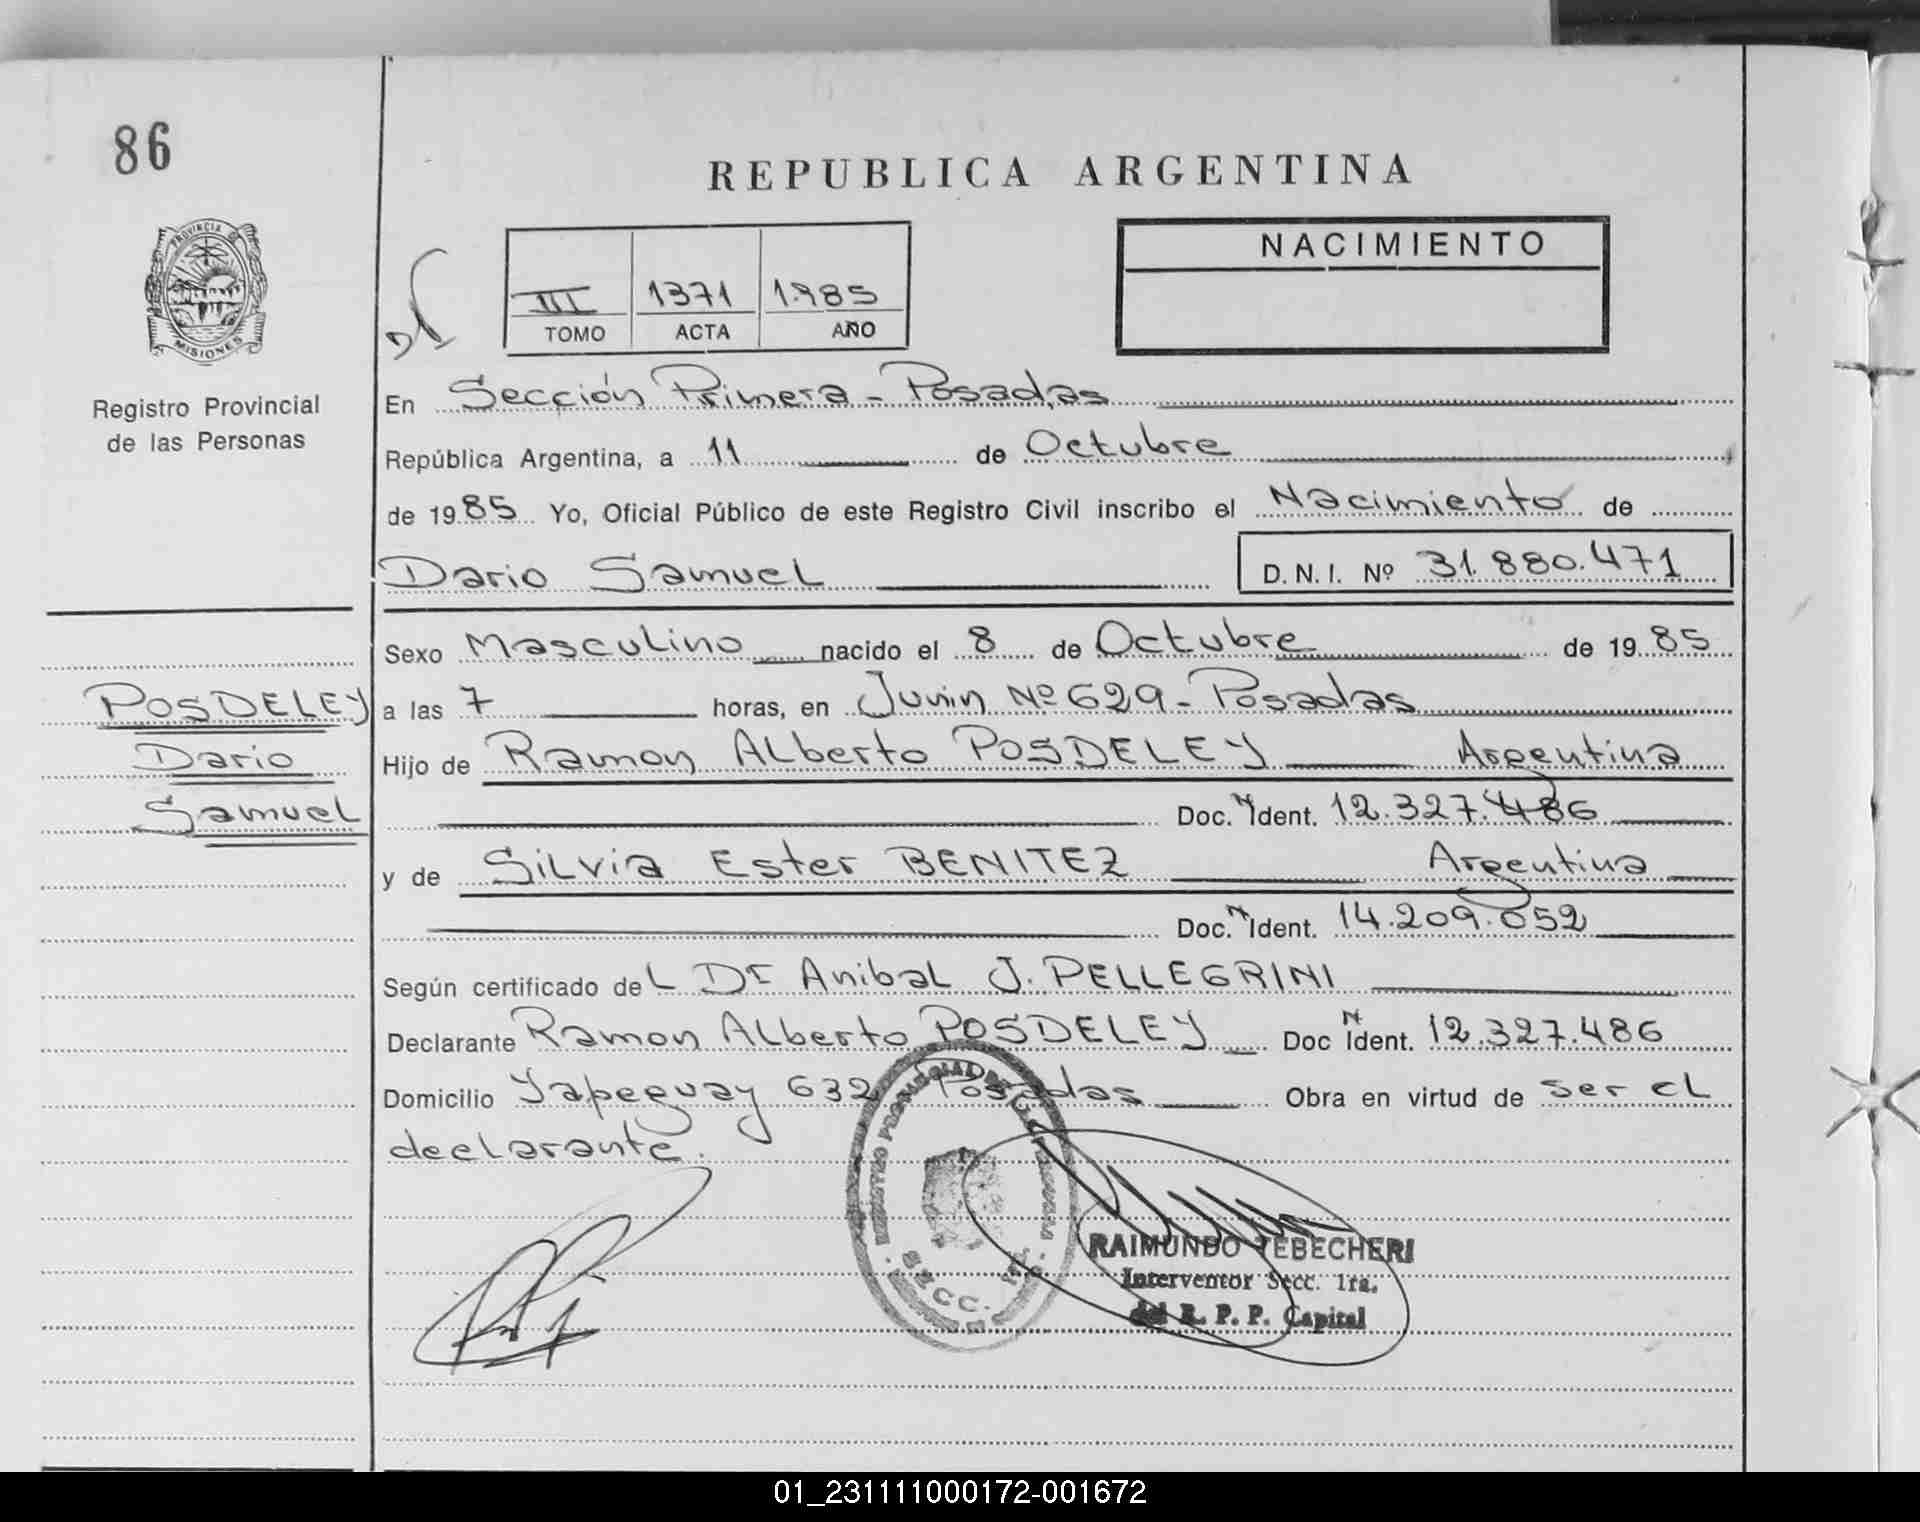 86
REPUBLICA ARGENTINA
PROVINCIA DE
MISIONES
Registro Provincial
de las Personas
III 1371 1.985
TOMO ACTA AÑO
NACIMIENTO
En Sección Primera - Posadas
República Argentina, a 11 de Octubre
de 1985 Yo, Oficial Público de este Registro Civil inscribo el Nacimiento de
Dario Samuel D.N.I. Nº 31.880.471
Sexo Masculino nacido el 8 de Octubre de 1985
POSDELEY
Dario
Samuel
a las 7 horas, en Junin Nº 629 - Posadas
Hijo de Ramon Alberto POSDELEY Argentina
Doc. N Ident. 12.327.486
y de Silvia Ester BENITEZ Argentina
Doc. N Ident. 14.209.052
Según certificado del Dr Anibal J. PELLEGRINI
Declarante Ramon Alberto POSDELEY Doc N Ident. 12.327.486
Domicilio Yapeguay 632 Posadas Obra en virtud de ser el
declarante.
SECC. 1ra
RAIMUNDO TEBECHERI
Interventor Secc. 1ra.
del R. P. P. Capital
01_231111000172-001672